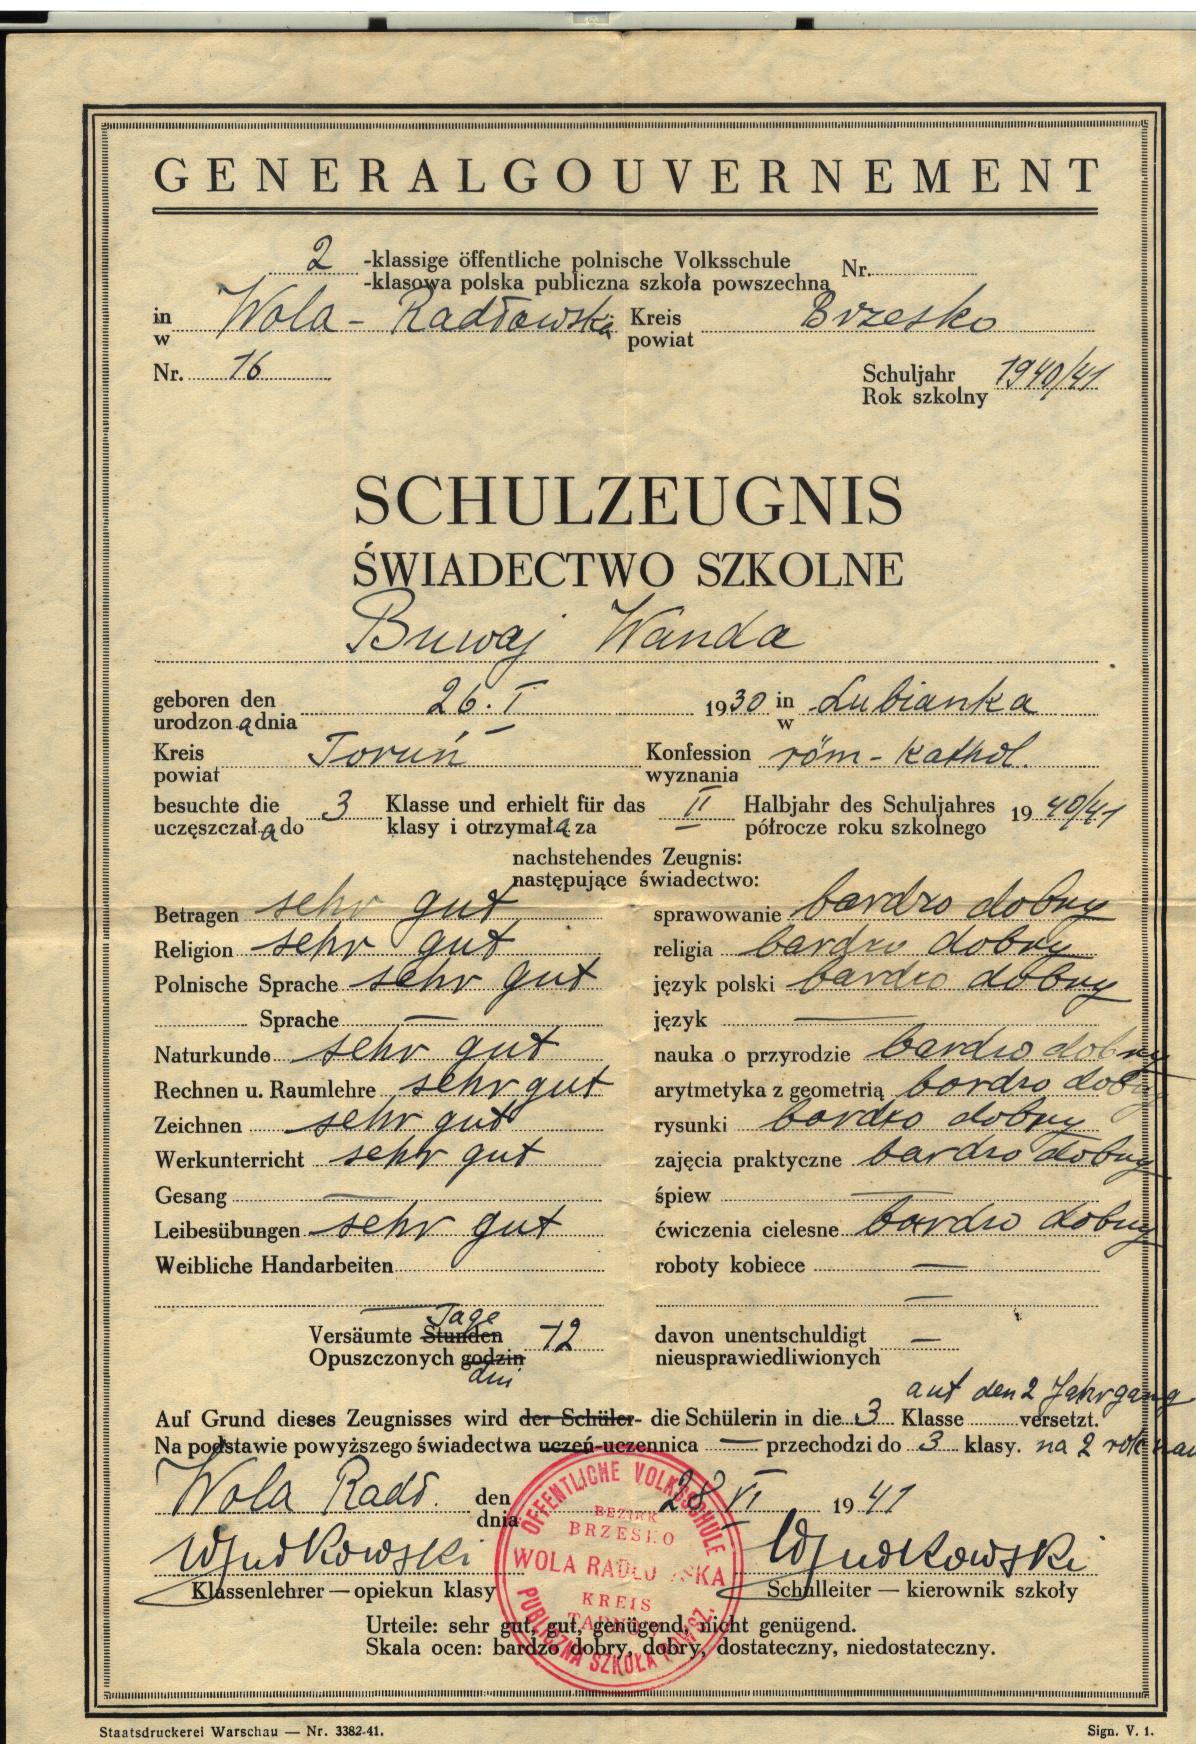 GENERALGOUVERNEMENT
2 -klassige öffentliche polnische Volksschule Nr.
-klasowa polska publiczna szkoła powszechna
in Wola - Radłowska Kreis Brzesko
w powiat
Nr. 16 Schuljahr 1940/41
Rok szkolny
SCHULZEUGNIS
ŚWIADECTWO SZKOLNE
Buwaj Wanda
geboren den 26. I 1930 in Łubianka
urodzona dnia w
Kreis Toruń Konfession röm-kathol.
powiat wyznania
besuchte die 3 Klasse und erhielt für das II Halbjahr des Schuljahres 1940/41
uczęszczała do klasy i otrzymała za półrocze roku szkolnego
nachstehendes Zeugnis:
następujące świadectwo:
Betragen sehr gut sprawowanie bardzo dobry
Religion sehr gut religia bardzo dobry
Polnische Sprache sehr gut język polski bardzo dobry
Sprache — język —
Naturkunde sehr gut nauka o przyrodzie bardzo dobry
Rechnen u. Raumlehre sehr gut arytmetyka z geometrią bardzo dobry
Zeichnen sehr gut rysunki bardzo dobry
Werkunterricht sehr gut zajęcia praktyczne bardzo dobry
Gesang — śpiew —
Leibesübungen sehr gut ćwiczenia cielesne bardzo dobry
Weibliche Handarbeiten roboty kobiece —
— —
Tage
Versäumte Stunden 12 davon unentschuldigt —
Opuszczonych godzin nieusprawiedliwionych
dni
auf den 2 Jahrgang
Auf Grund dieses Zeugnisses wird der Schüler- die Schülerin in die 3 Klasse versetzt.
Na podstawie powyższego świadectwa uczeń-uczennica — przechodzi do 3 klasy. na 2 rok
Wola Radł. den 28 VI 1941
dnia
Klassenlehrer — opiekun klasy Schulleiter — kierownik szkoły
Urteile: sehr gut, gut, genügend, nicht genügend.
Skala ocen: bardzo dobry, dobry, dostateczny, niedostateczny.
ÖFFENTLICHE VOLKSSCHULE
BEZIRK
BRZESKO
WOLA RADŁOWSKA
KREIS
TARNOW
PUBLICZNA SZKOŁA POWSZ.
Staatsdruckerei Warschau — Nr. 3382-41. Sign. V. 1.